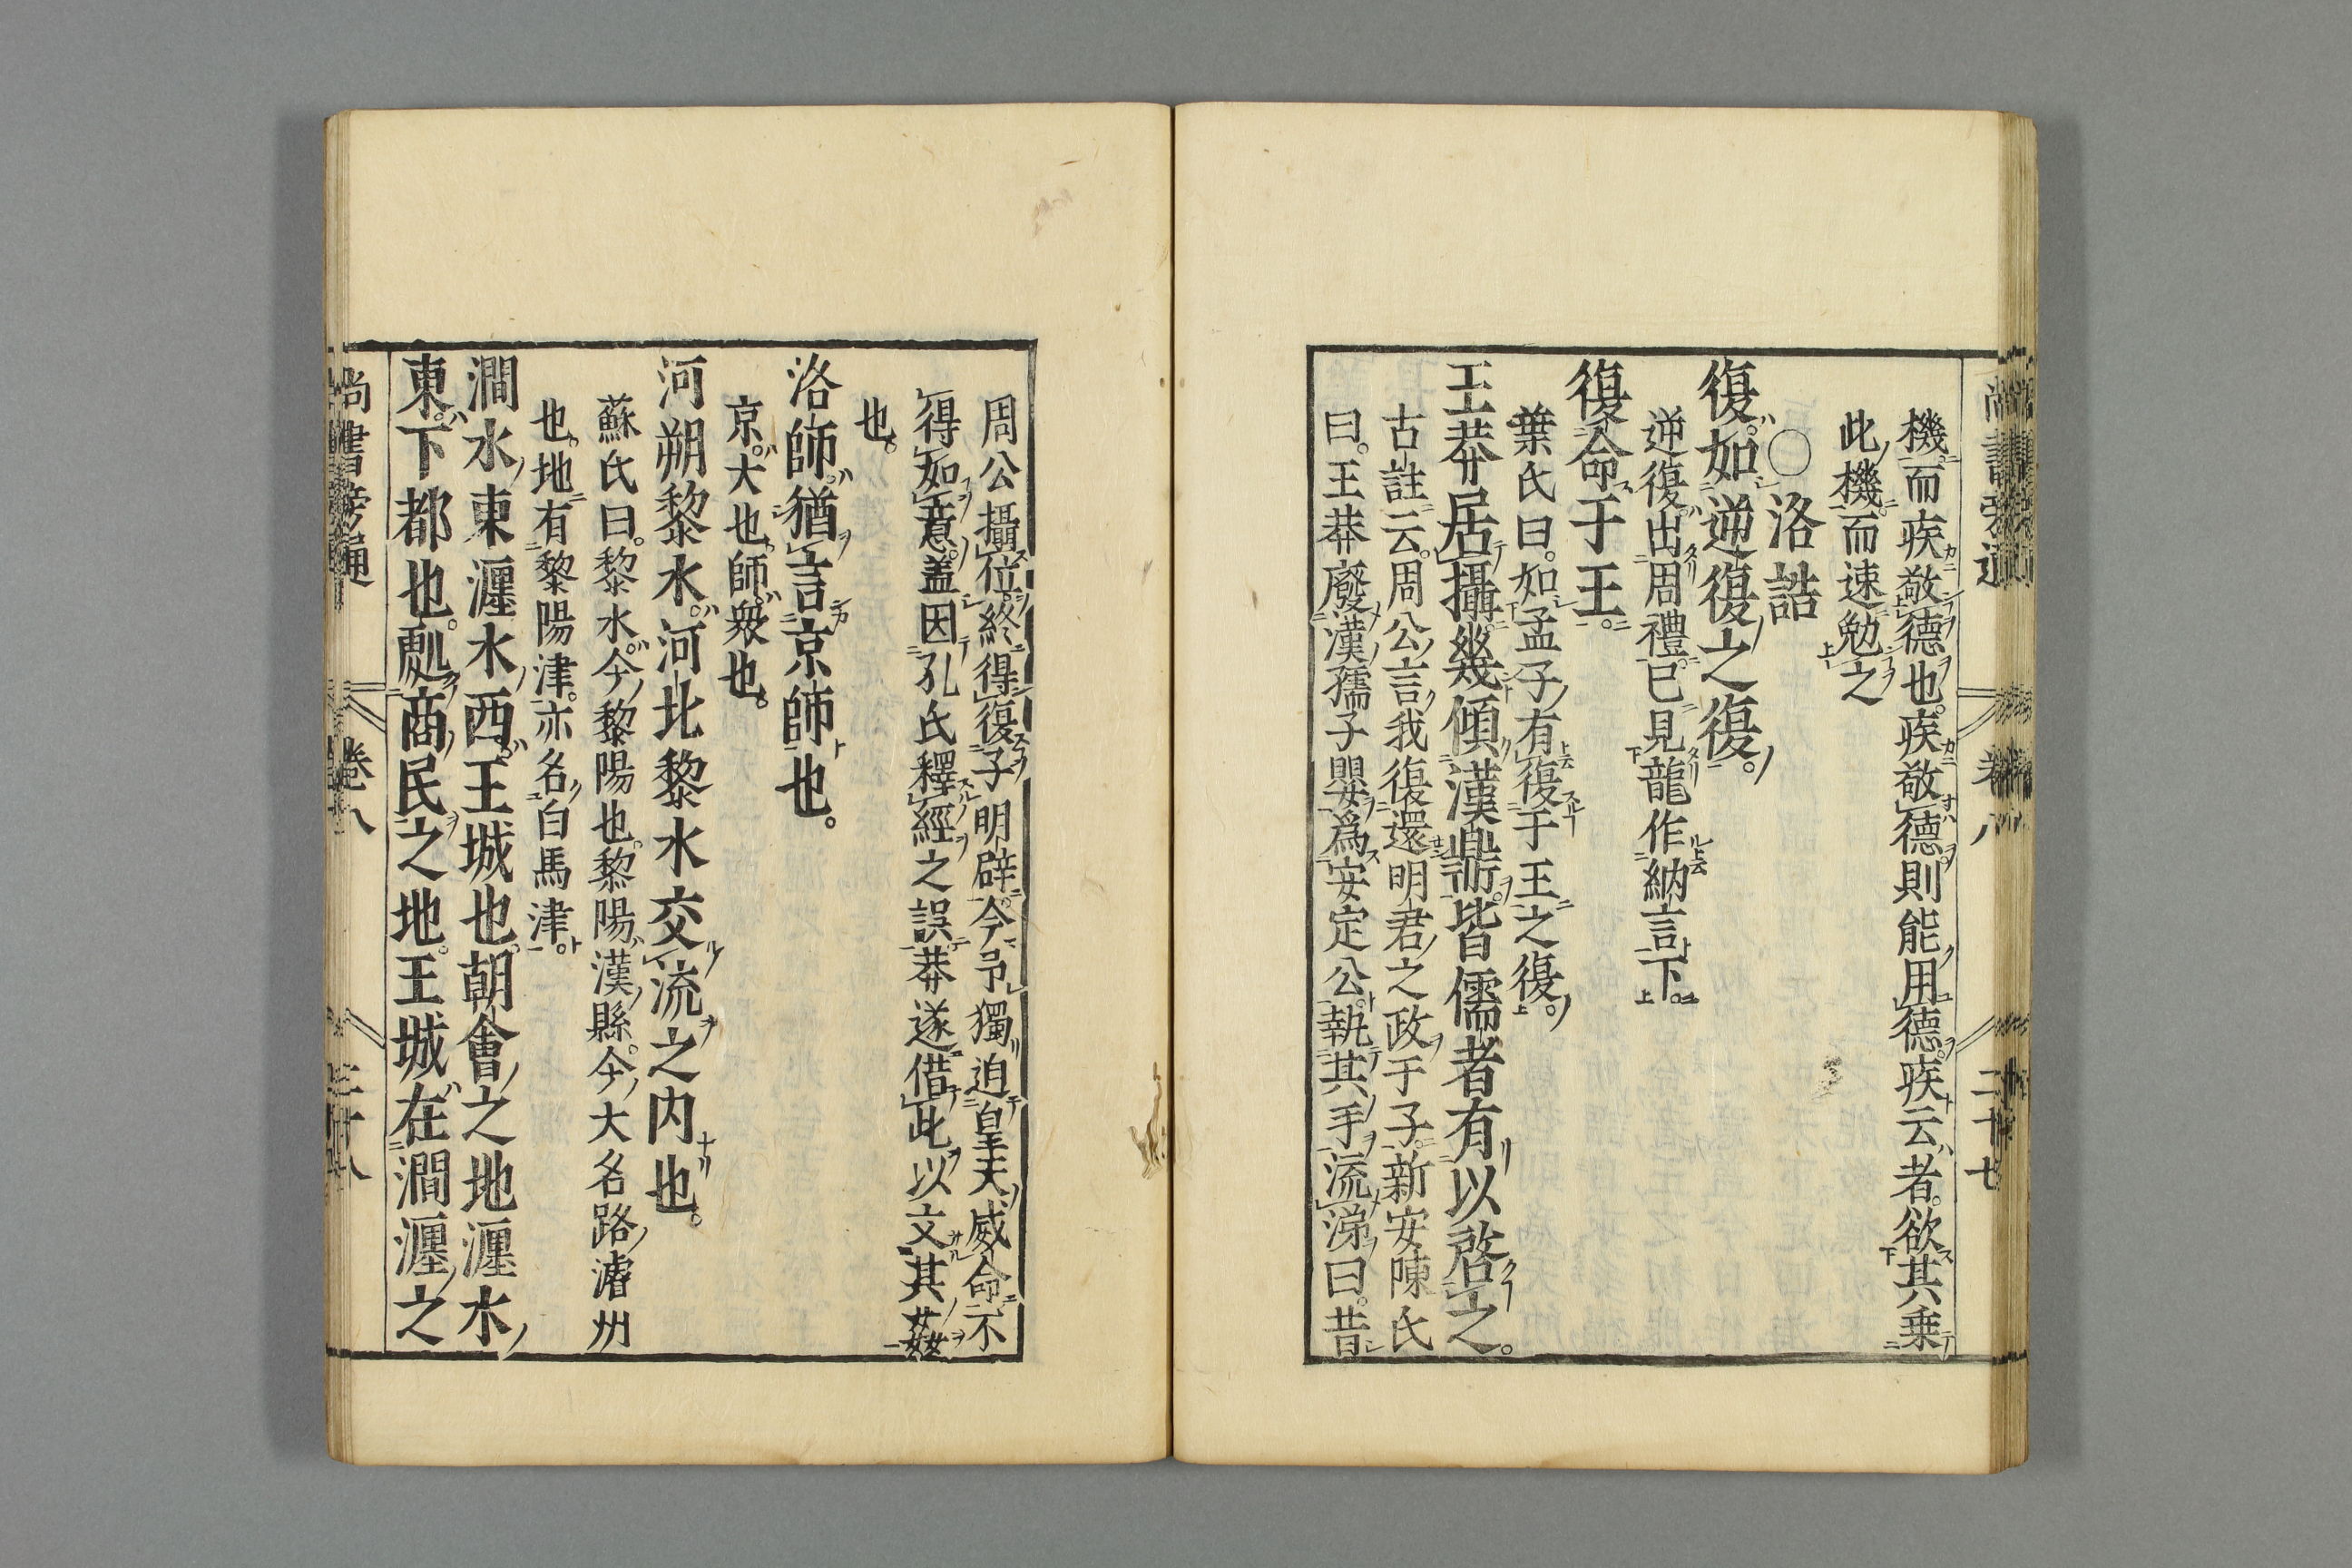 機而疾敬德也。疾敬德則能用德。疾云者。欲其乗
此機而速勉之
○洛誥
復。如逆復之復。
逆復。出周禮。已見龍作納言下。
復命于王。
葉氏曰。如孟子有復于王之復。
王莽居攝。幾傾漢鼎。皆儒者有以啓之。
古註云。周公言我復還明君之政于子。新安陳氏
曰。王莽廢漢孺子嬰。爲安定公。執其手流涕曰。昔
周公攝位。終得復子明辟。今予獨迫皇天威命。不
得如意。盖因孔氏釋經之誤。莽遂借此以文其姦
也。
洛師。猶言京師也。
京。大也。師。衆也。
河朔黎水。河北黎水交流之内也。
蘇氏曰。黎水。今黎陽也。黎陽。漢縣。今大名路濬州
也。地有黎陽津。亦名白馬津。
澗水東瀍水西。王城也。朝會之地瀍水
東。下都也。處商民之地。王城在澗瀍之
尚書旁通 卷八 二十七
尚書旁通 卷八 二十八